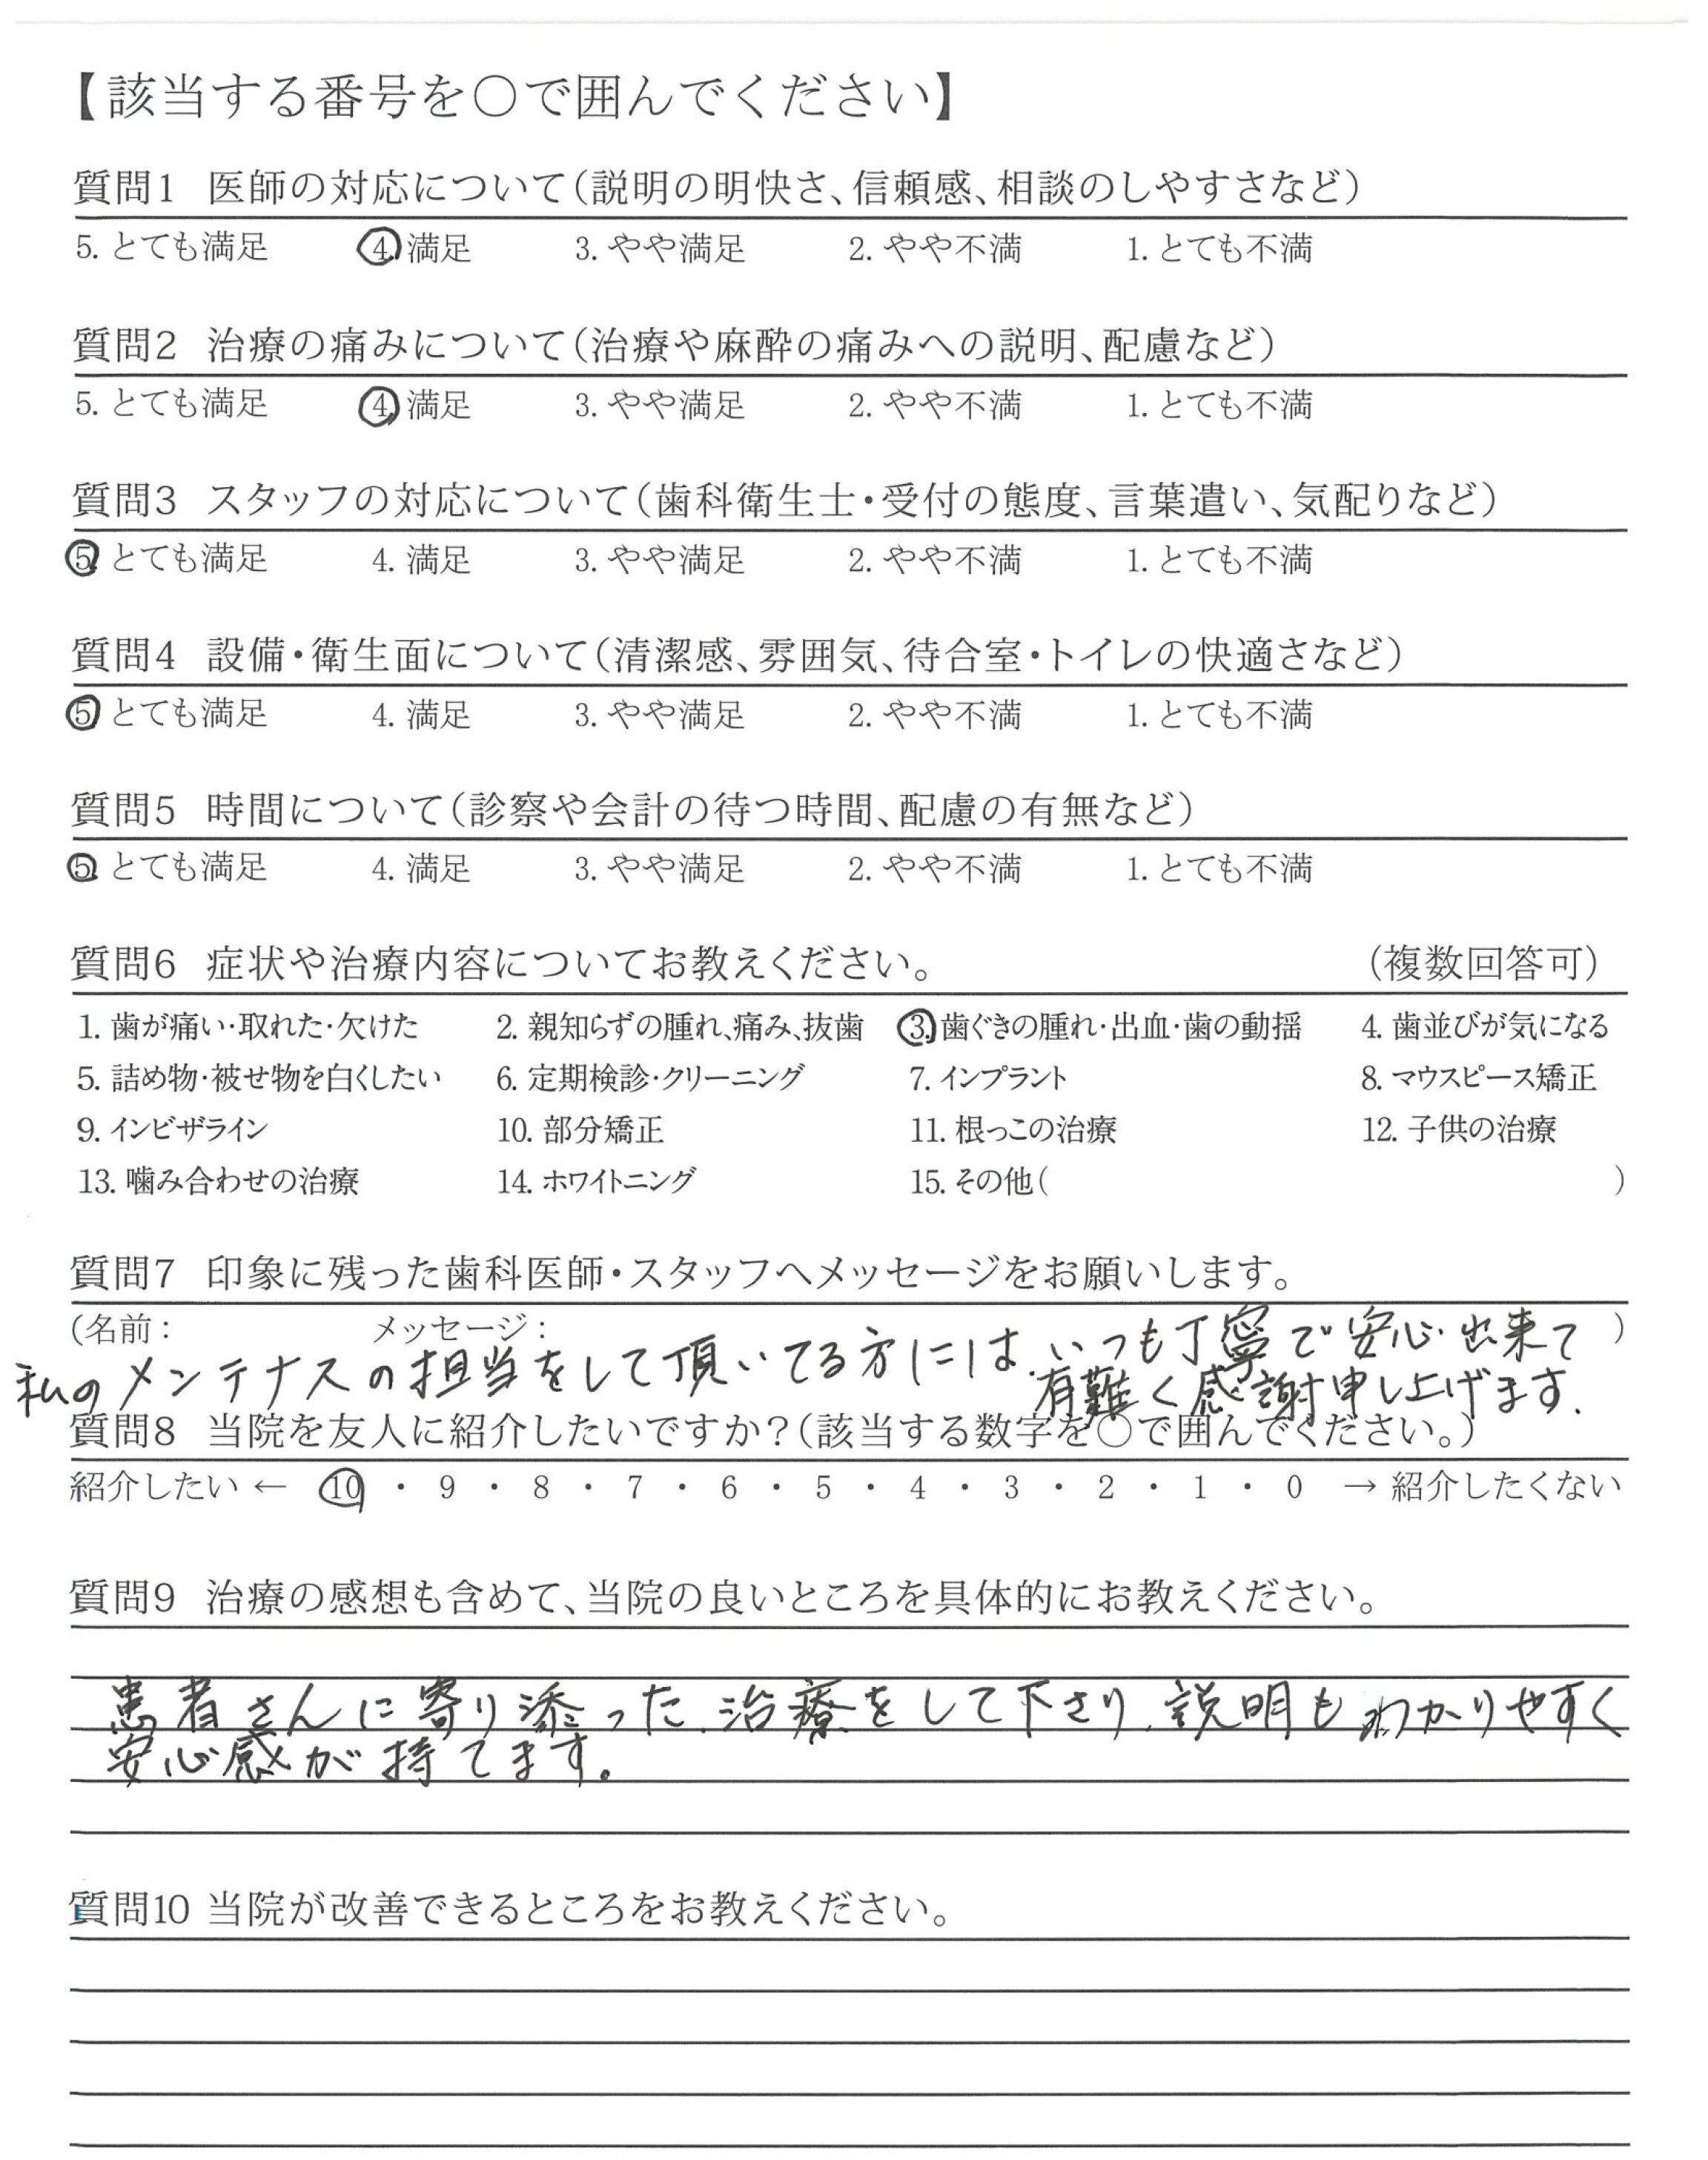 【該当する番号を〇で囲んでください】
質問1 医師の対応について（説明の明快さ、信頼感、相談のしやすさなど）
5. とても満足 4. 満足 3. やや満足 2. やや不満 1. とても不満
質問2 治療の痛みについて（治療や麻酔の痛みへの説明、配慮など）
5. とても満足 4. 満足 3. やや満足 2. やや不満 1. とても不満
質問3 スタッフの対応について（歯科衛生士・受付の態度、言葉遣い、気配りなど）
5. とても満足 4. 満足 3. やや満足 2. やや不満 1. とても不満
質問4 設備・衛生面について（清潔感、雰囲気、待合室・トイレの快適さなど）
5. とても満足 4. 満足 3. やや満足 2. やや不満 1. とても不満
質問5 時間について（診察や会計の待つ時間、配慮の有無など）
5. とても満足 4. 満足 3. やや満足 2. やや不満 1. とても不満
質問6 症状や治療内容についてお教えください。 （複数回答可）
1. 歯が痛い・取れた・欠けた 2. 親知らずの腫れ、痛み、抜歯 3. 歯ぐきの腫れ・出血・歯の動揺 4. 歯並びが気になる
5. 詰め物・被せ物を白くしたい 6. 定期検診・クリーニング 7. インプラント 8. マウスピース矯正
9. インビザライン 10. 部分矯正 11. 根っこの治療 12. 子供の治療
13. 噛み合わせの治療 14. ホワイトニング 15. その他（ ）
質問7 印象に残った歯科医師・スタッフへメッセージをお願いします。
（名前： メッセージ： ）
私のメンテナスの担当をして頂いてる方には、いつも丁寧で安心出来て
有難く感謝申し上げます.
質問8 当院を友人に紹介したいですか？（該当する数字を〇で囲んでください。）
紹介したい ← 10 ・ 9 ・ 8 ・ 7 ・ 6 ・ 5 ・ 4 ・ 3 ・ 2 ・ 1 ・ 0 → 紹介したくない
質問9 治療の感想も含めて、当院の良いところを具体的にお教えください。
患者さんに寄り添った、治療をして下さり、説明もわかりやすく
安心感が持てます。
質問10 当院が改善できるところをお教えください。